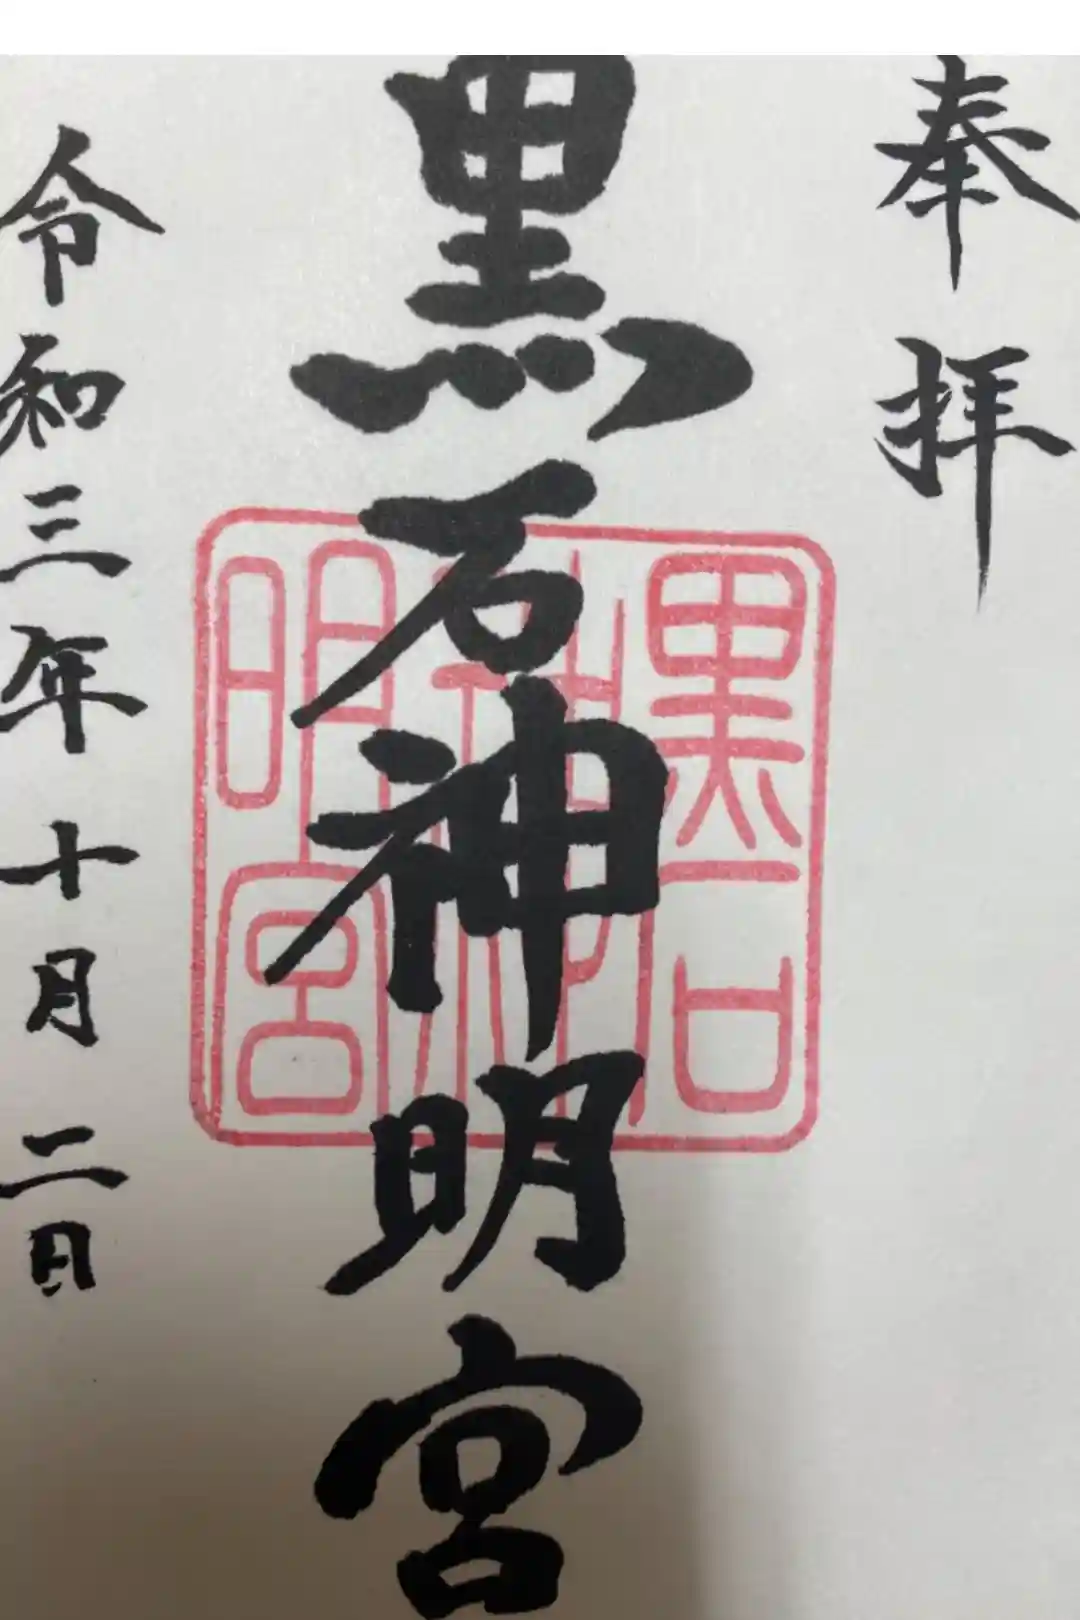 奉拝
黒石神明宮
黒石
神社
明宮
令和三年十月二日